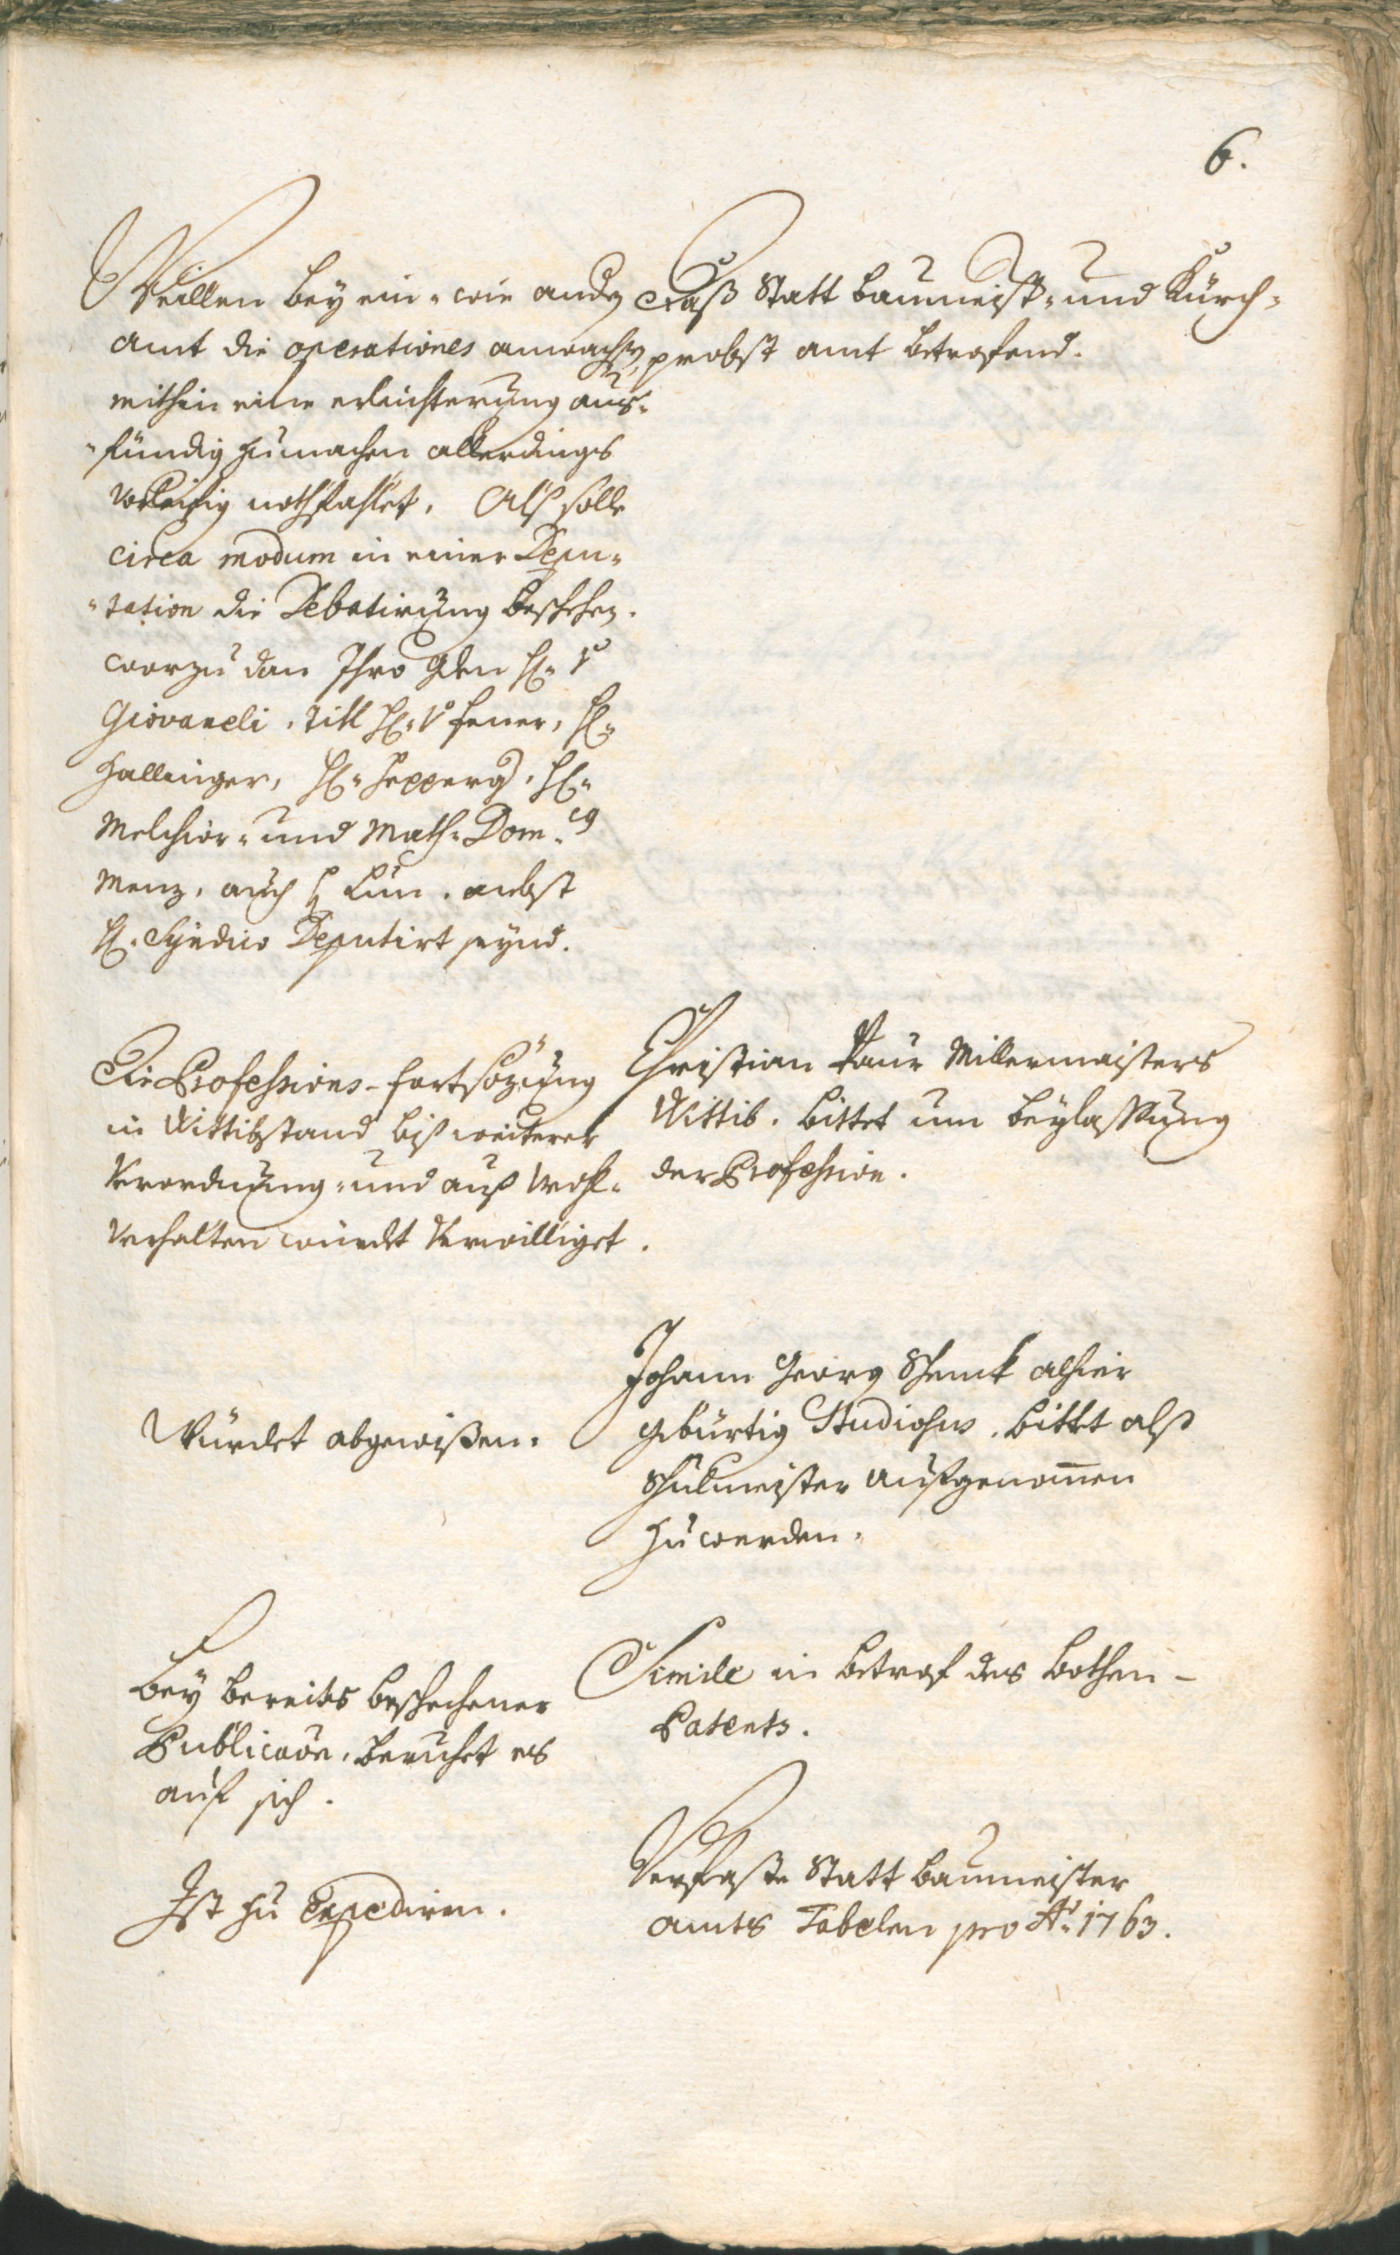 6.
Weillen bey ein- wie anderen
amt die operationes anwachsen,
mithin eine erleichterung aus-
-fündig zumachen allerdings
nothfahlet. Als solle
circa modum in einer Depu-
-tation die Debatirung beschehen.
worzu dan Ihro Gden H: v
Giovaneli, titl H: v Feuer, H:
Hallinger, H: Hepperg, H:
Melchior- und Math: Dom:
Menz, auch H Lun. nebst
H: Syndico Deputirt seynd.
Daß Statt baumeist- und Kürch-
probst amt betrefend.
Die Professions-fortsözung
in Wittibstand biß weiterer
Verordnung- und auf Wohl-
verhalten würdet Verwilliget.
Christian Paur Millermaisters
Wittib. bittet um beylassung
der Profession.
Würdet abgewißen.
Johann Georg Schenck alhier
gebürtig Studiosus. bittet alß
schulmeister aufgenomen
zuwerden.
Bey bereits beschechener
Publicaon. beruhet es
auf sich.
Simile in betref des bothen-
Patents.
Ist zu Expediren.
Verfaste Statt baumeister
amts Tabelen pro A: 1763.